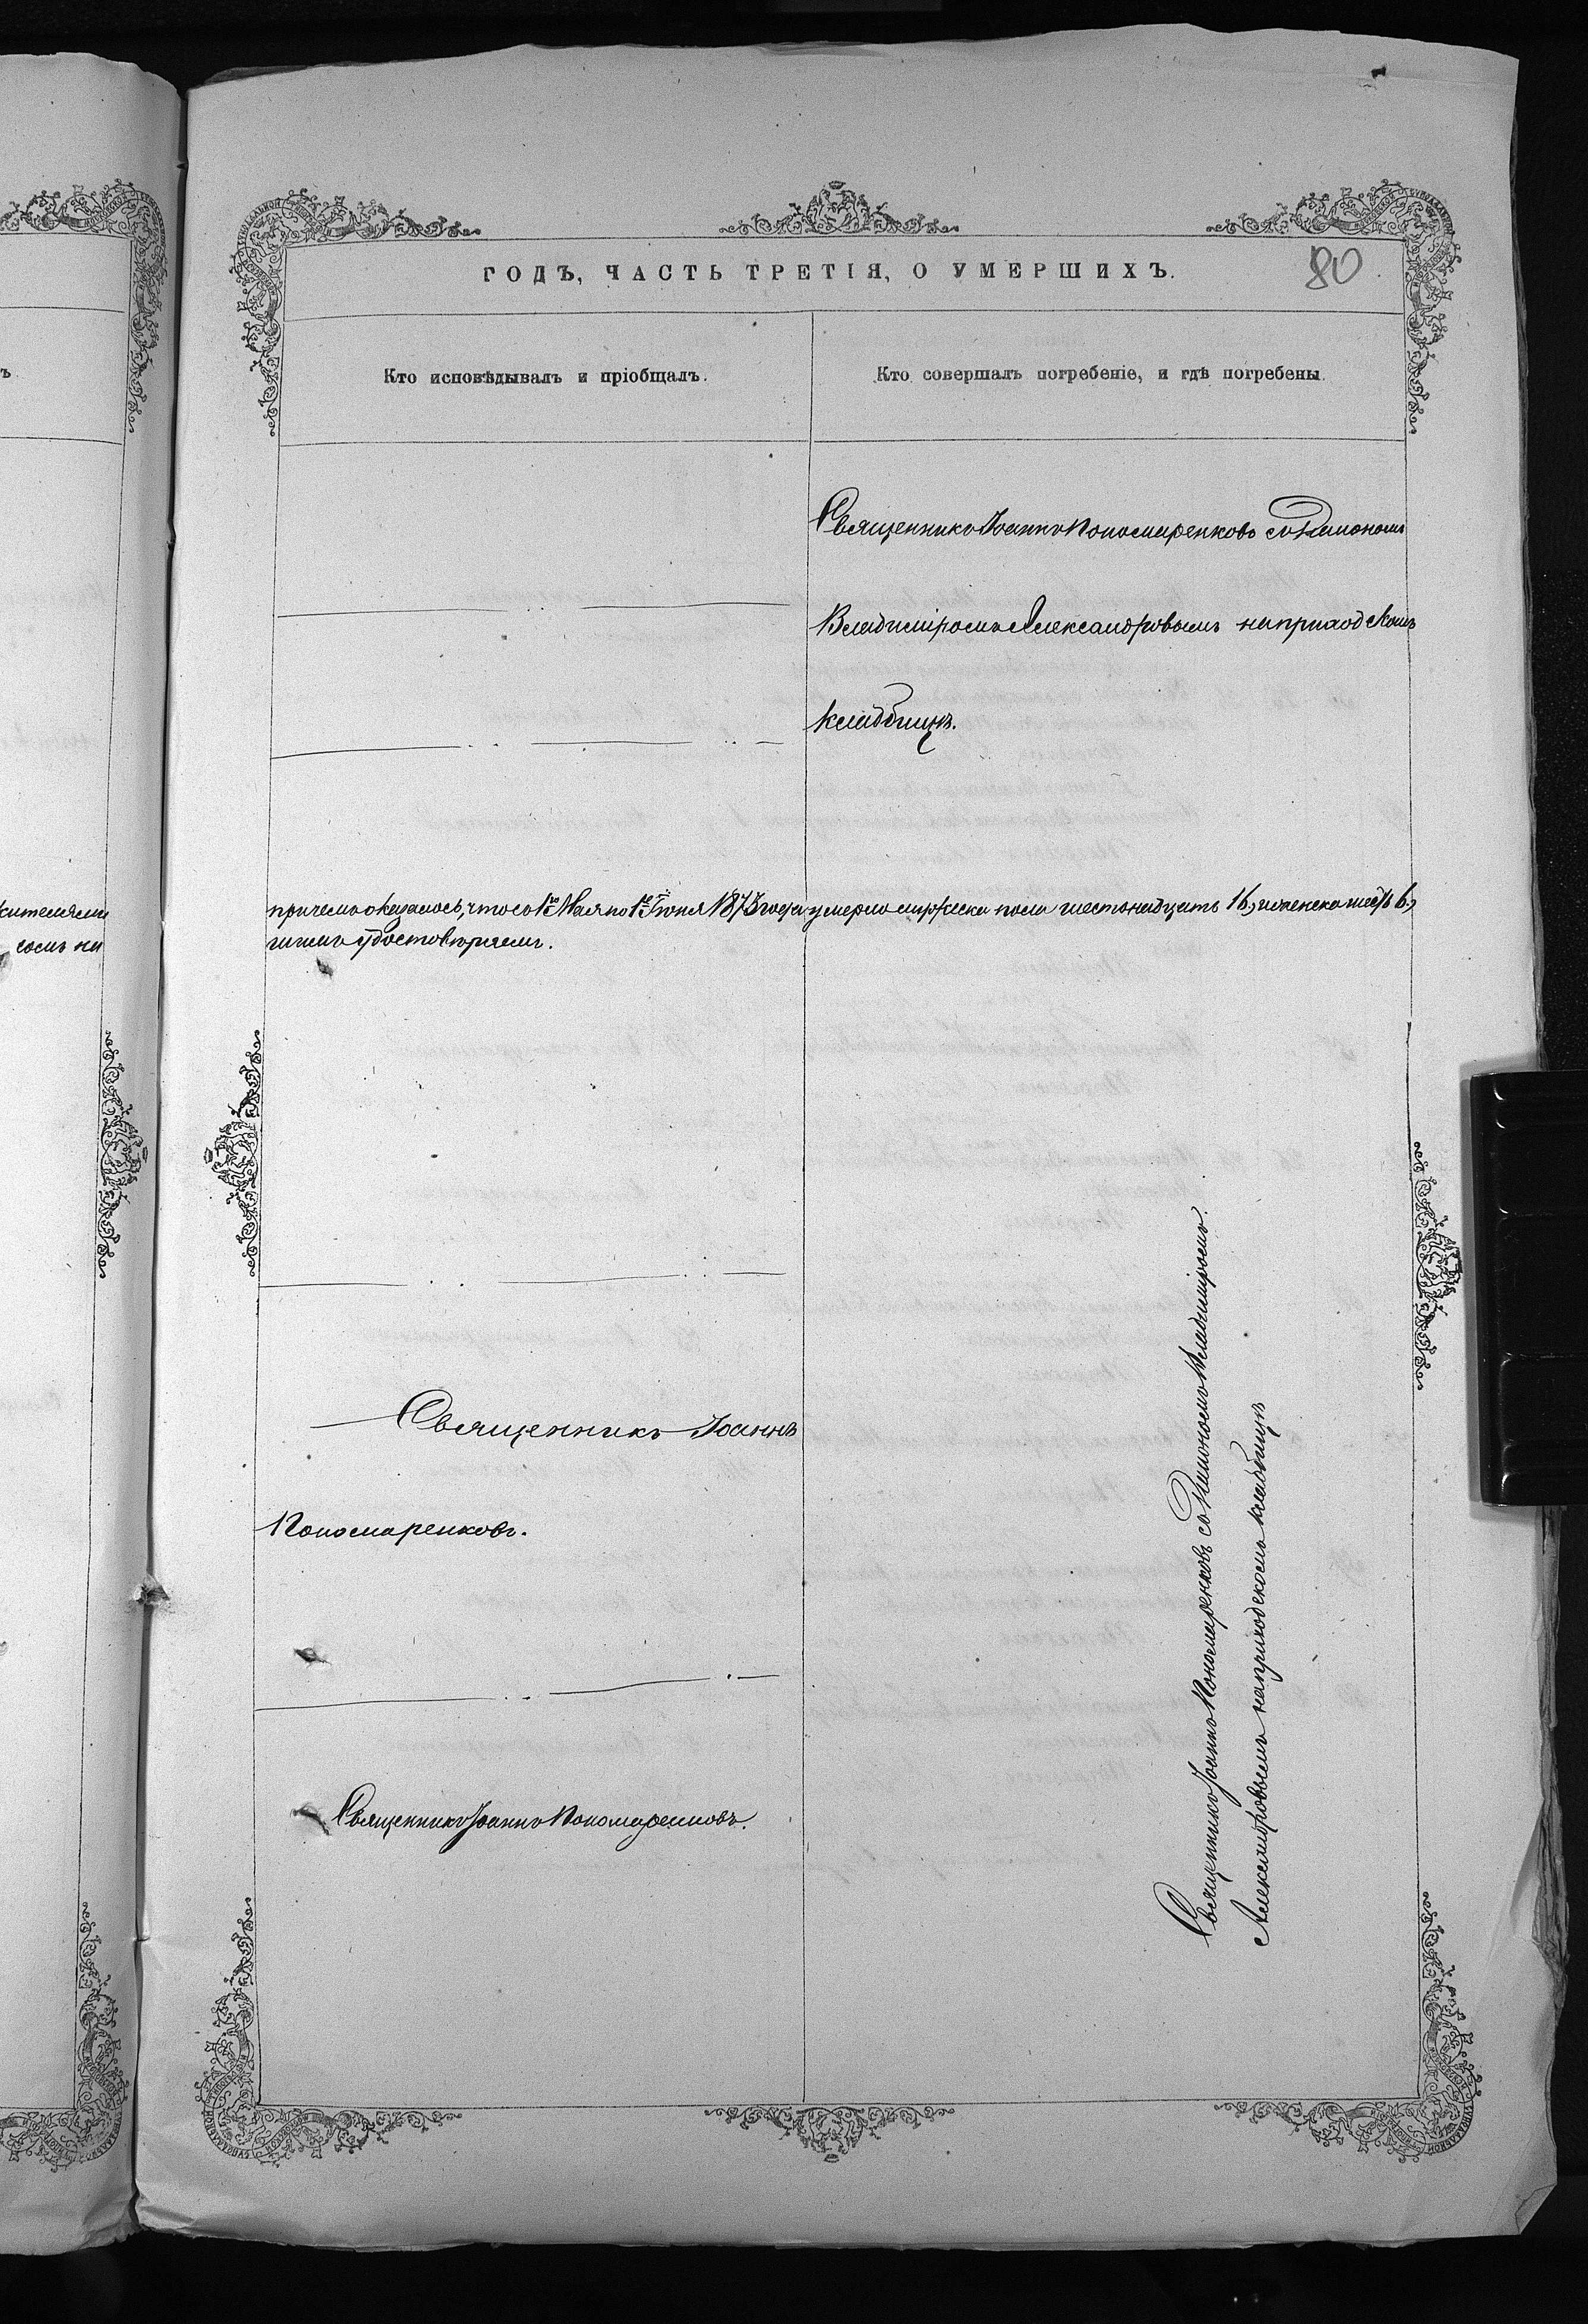 ГОДЪ, ЧАСТЬ ТРЕТІЯ, О УМЕРШИХЪ.
80
Кто исповѣдывалъ и пріобщалъ.
Кто совершалъ погребеніе, и гдѣ погребены.
Священникъ Іоаннъ Пономаренковъ съ Діакономъ
Владиміромъ Александровымъ на приходскомъ
кладбищѣ.
жителями
причемъ оказалось, что съ 1го Мая по 1е Іюня 1873 года умерло мужеска пола шестьнадцать 16, и женска шесть 6,
на
чемъ и удостовѣряемъ.
Священникъ Іоаннъ
Пономаренковъ.
Священникъ Іоаннъ Пономаренковъ.
Священникъ Іоаннъ Пономаренковъ съ Діакономъ Владиміромъ
Александровымъ на приходскомъ кладбищѣ